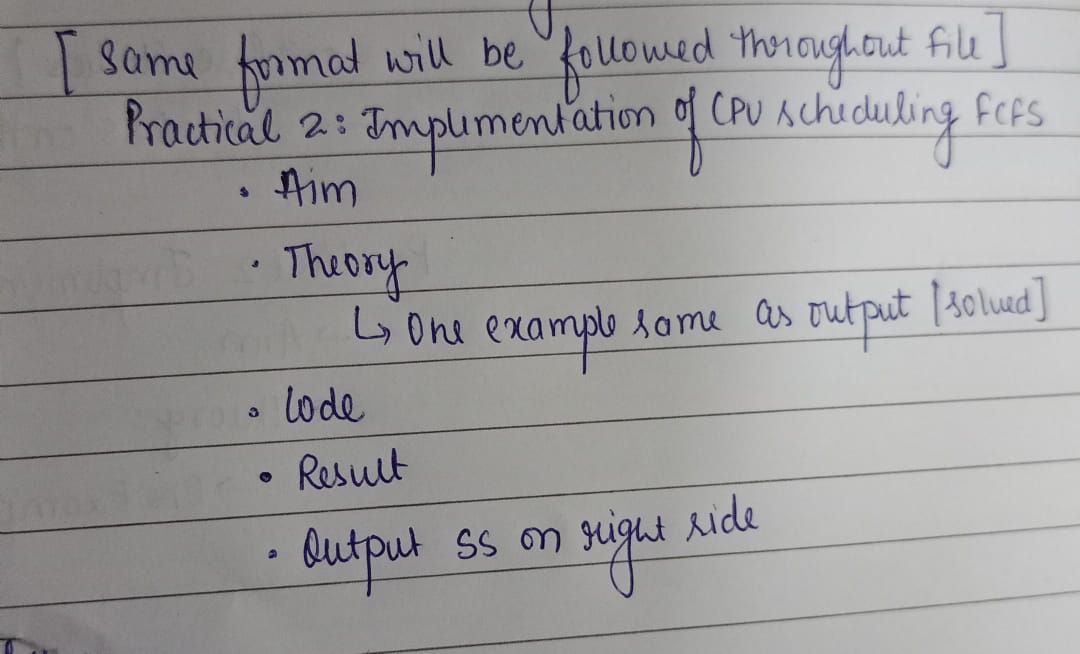 [ Same format will be followed throughout file ]
Practical 2: Implementation of CPU scheduling FCFS
• Aim
• Theory
↳ One example same as output [solved]
• Code
• Result
• Output ss on right side